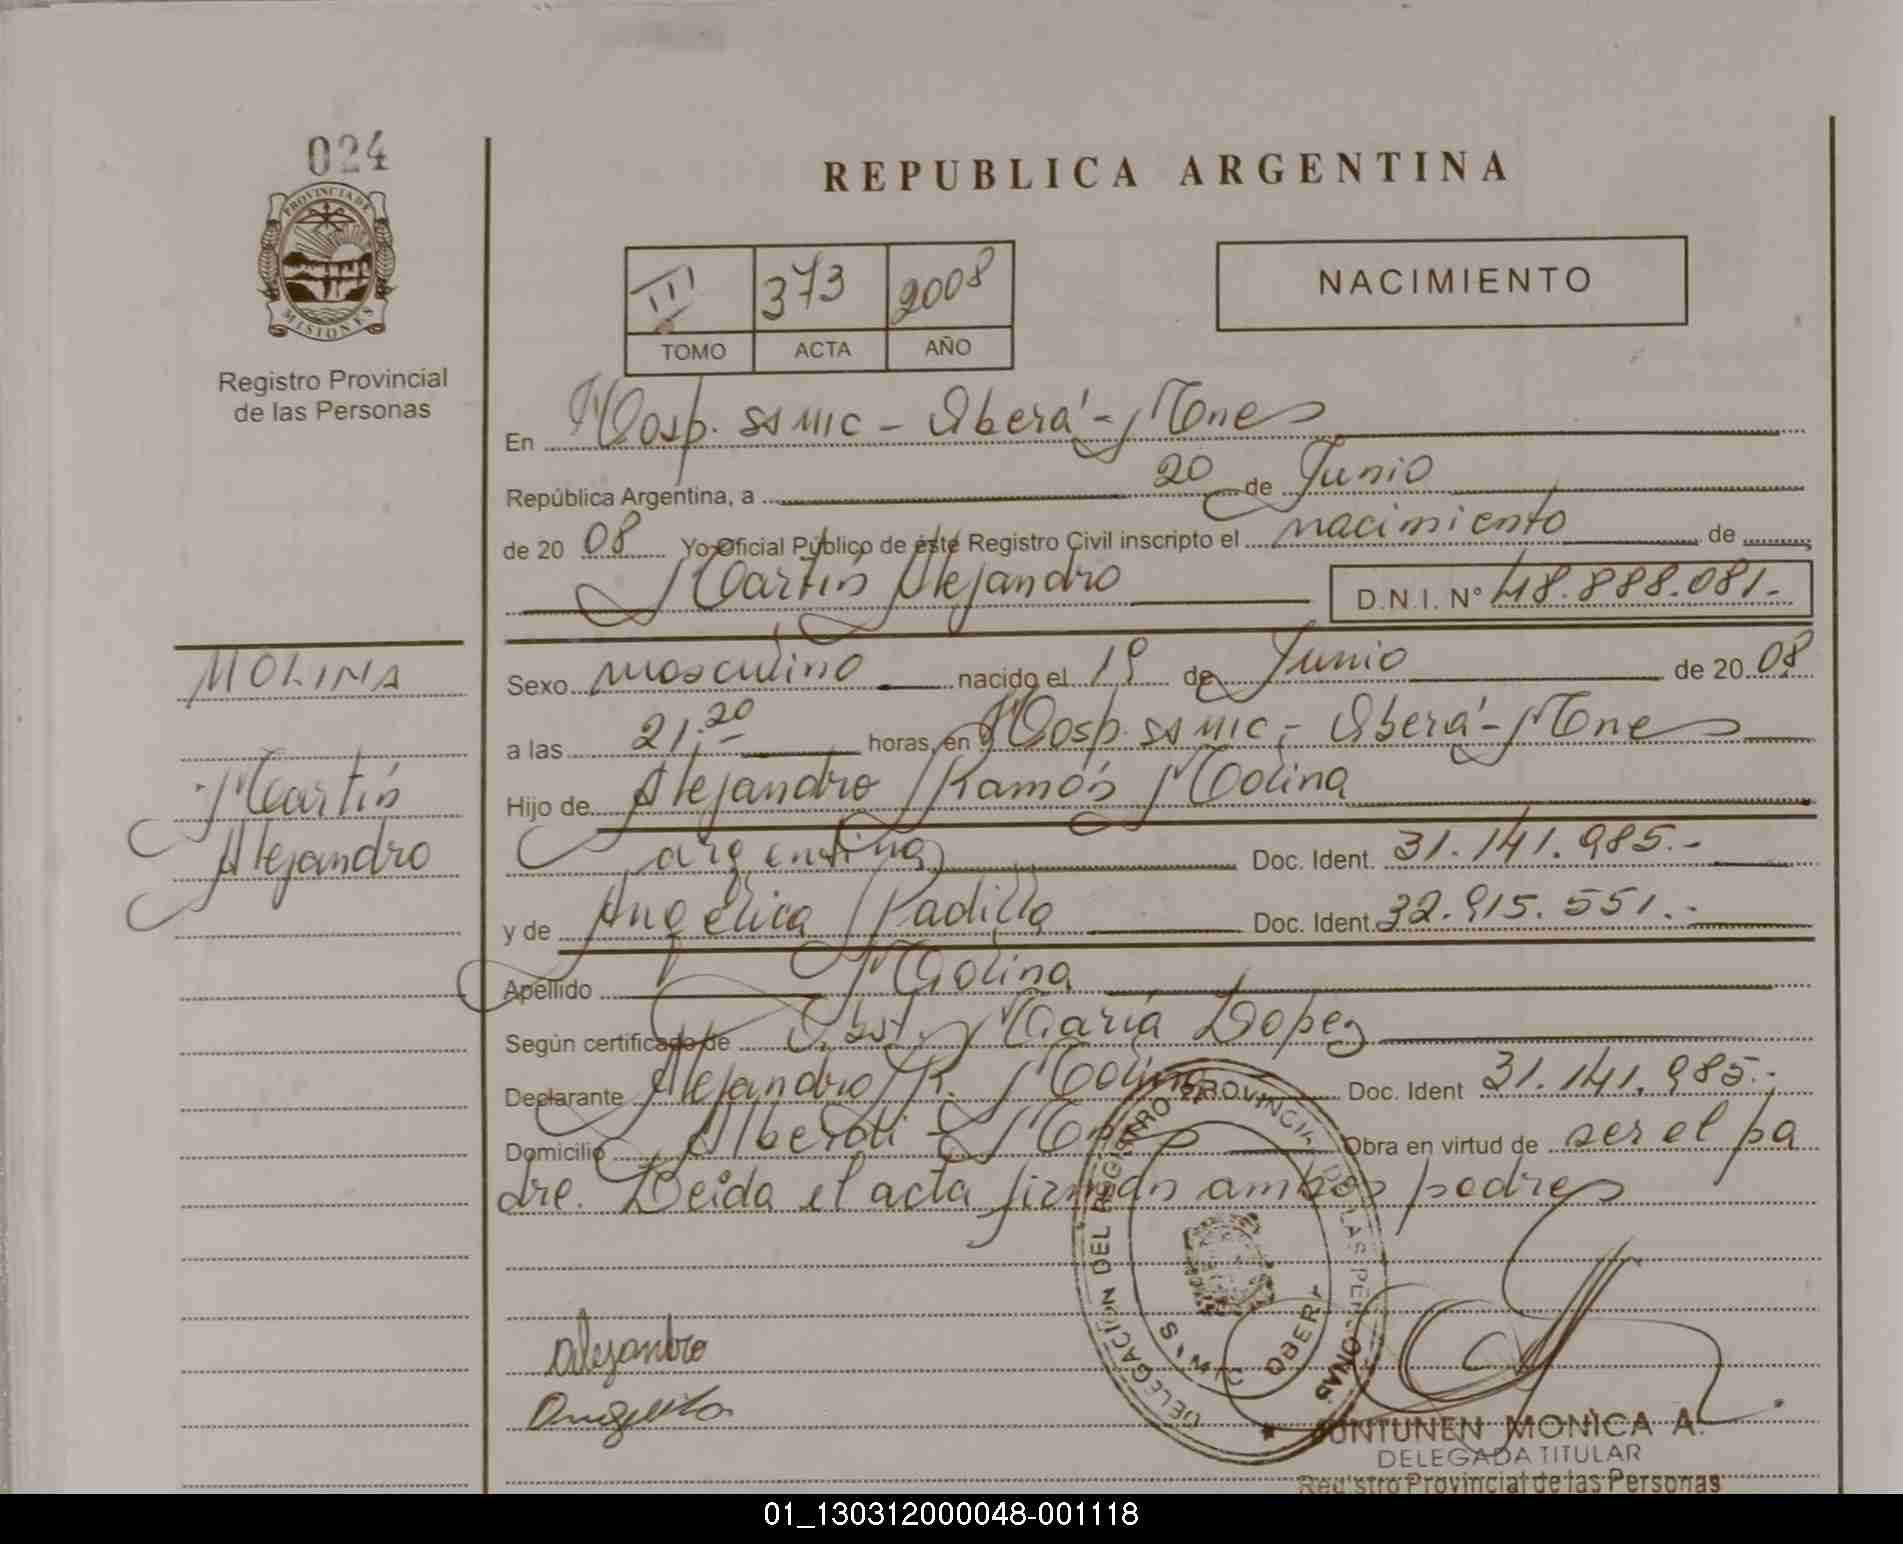 024
PROVINCIA DE
MISIONES
Registro Provincial
de las Personas
REPUBLICA ARGENTINA
III 373 2008
TOMO ACTA AÑO
NACIMIENTO
En Hosp. SAMIC - Oberá - Mnes
República Argentina, a 20 de Junio
de 2008 Yo Oficial Público de éste Registro Civil inscripto el nacimiento de
Martín Alejandro D.N.I. N° 48.888.081.-
MOLINA
Martín
Alejandro
Sexo masculino nacido el 19 de Junio de 2008
a las 21:20 horas, en Hosp. SAMIC - Oberá - Mnes
Hijo de Alejandro Ramón Molina
argentina Doc. Ident. 31.141.985.-
y de Angélica Padilla Doc. Ident. 32.915.551.-
Apellido Molina
Según certificado de Obst. María Lopez
Declarante Alejandro R. Molina Doc. Ident 31.141.985.-
Domicilio Alberdi - Mnes Obra en virtud de ser el pa
dre. Leida el acta firman ambos padres
Alejandro
DELEGACIÓN DEL REGISTRO PROVINCIAL DE LAS PERSONAS
OBERÁ
MONICA A.
DELEGADA TITULAR
Registro Provincial de las Personas
01_130312000048-001118